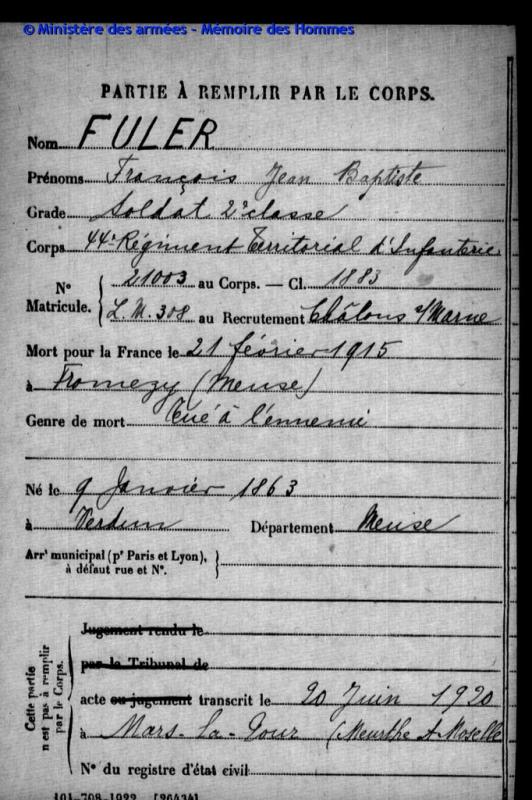 © Ministère des armées - Mémoire des Hommes
PARTIE À REMPLIR PAR LE CORPS.
Nom FULER
Prénoms François Jean Baptiste
Grade Soldat 2e classe
Corps 44e Régiment Territorial d'Infanterie
N° Matricule. { 21003 au Corps. — Cl. 1883
L.M. 308 au Recrutement Châlons s/Marne
Mort pour la France le 21 février 1915
à Fromezy (Meuse)
Genre de mort Tué à l'ennemi
Né le 9 Janvier 1863
à Verdun Département Meuse
Arrt municipal (pr Paris et Lyon), }
à défaut rue et N°.
Cette partie n'est pas à remplir par le Corps.
Jugement rendu le
par le Tribunal de
acte ou jugement transcrit le 20 Juin 1920
à Mars-La-Tour (Meurthe & Moselle
N° du registre d'état civil
101-708-1922. [26434]